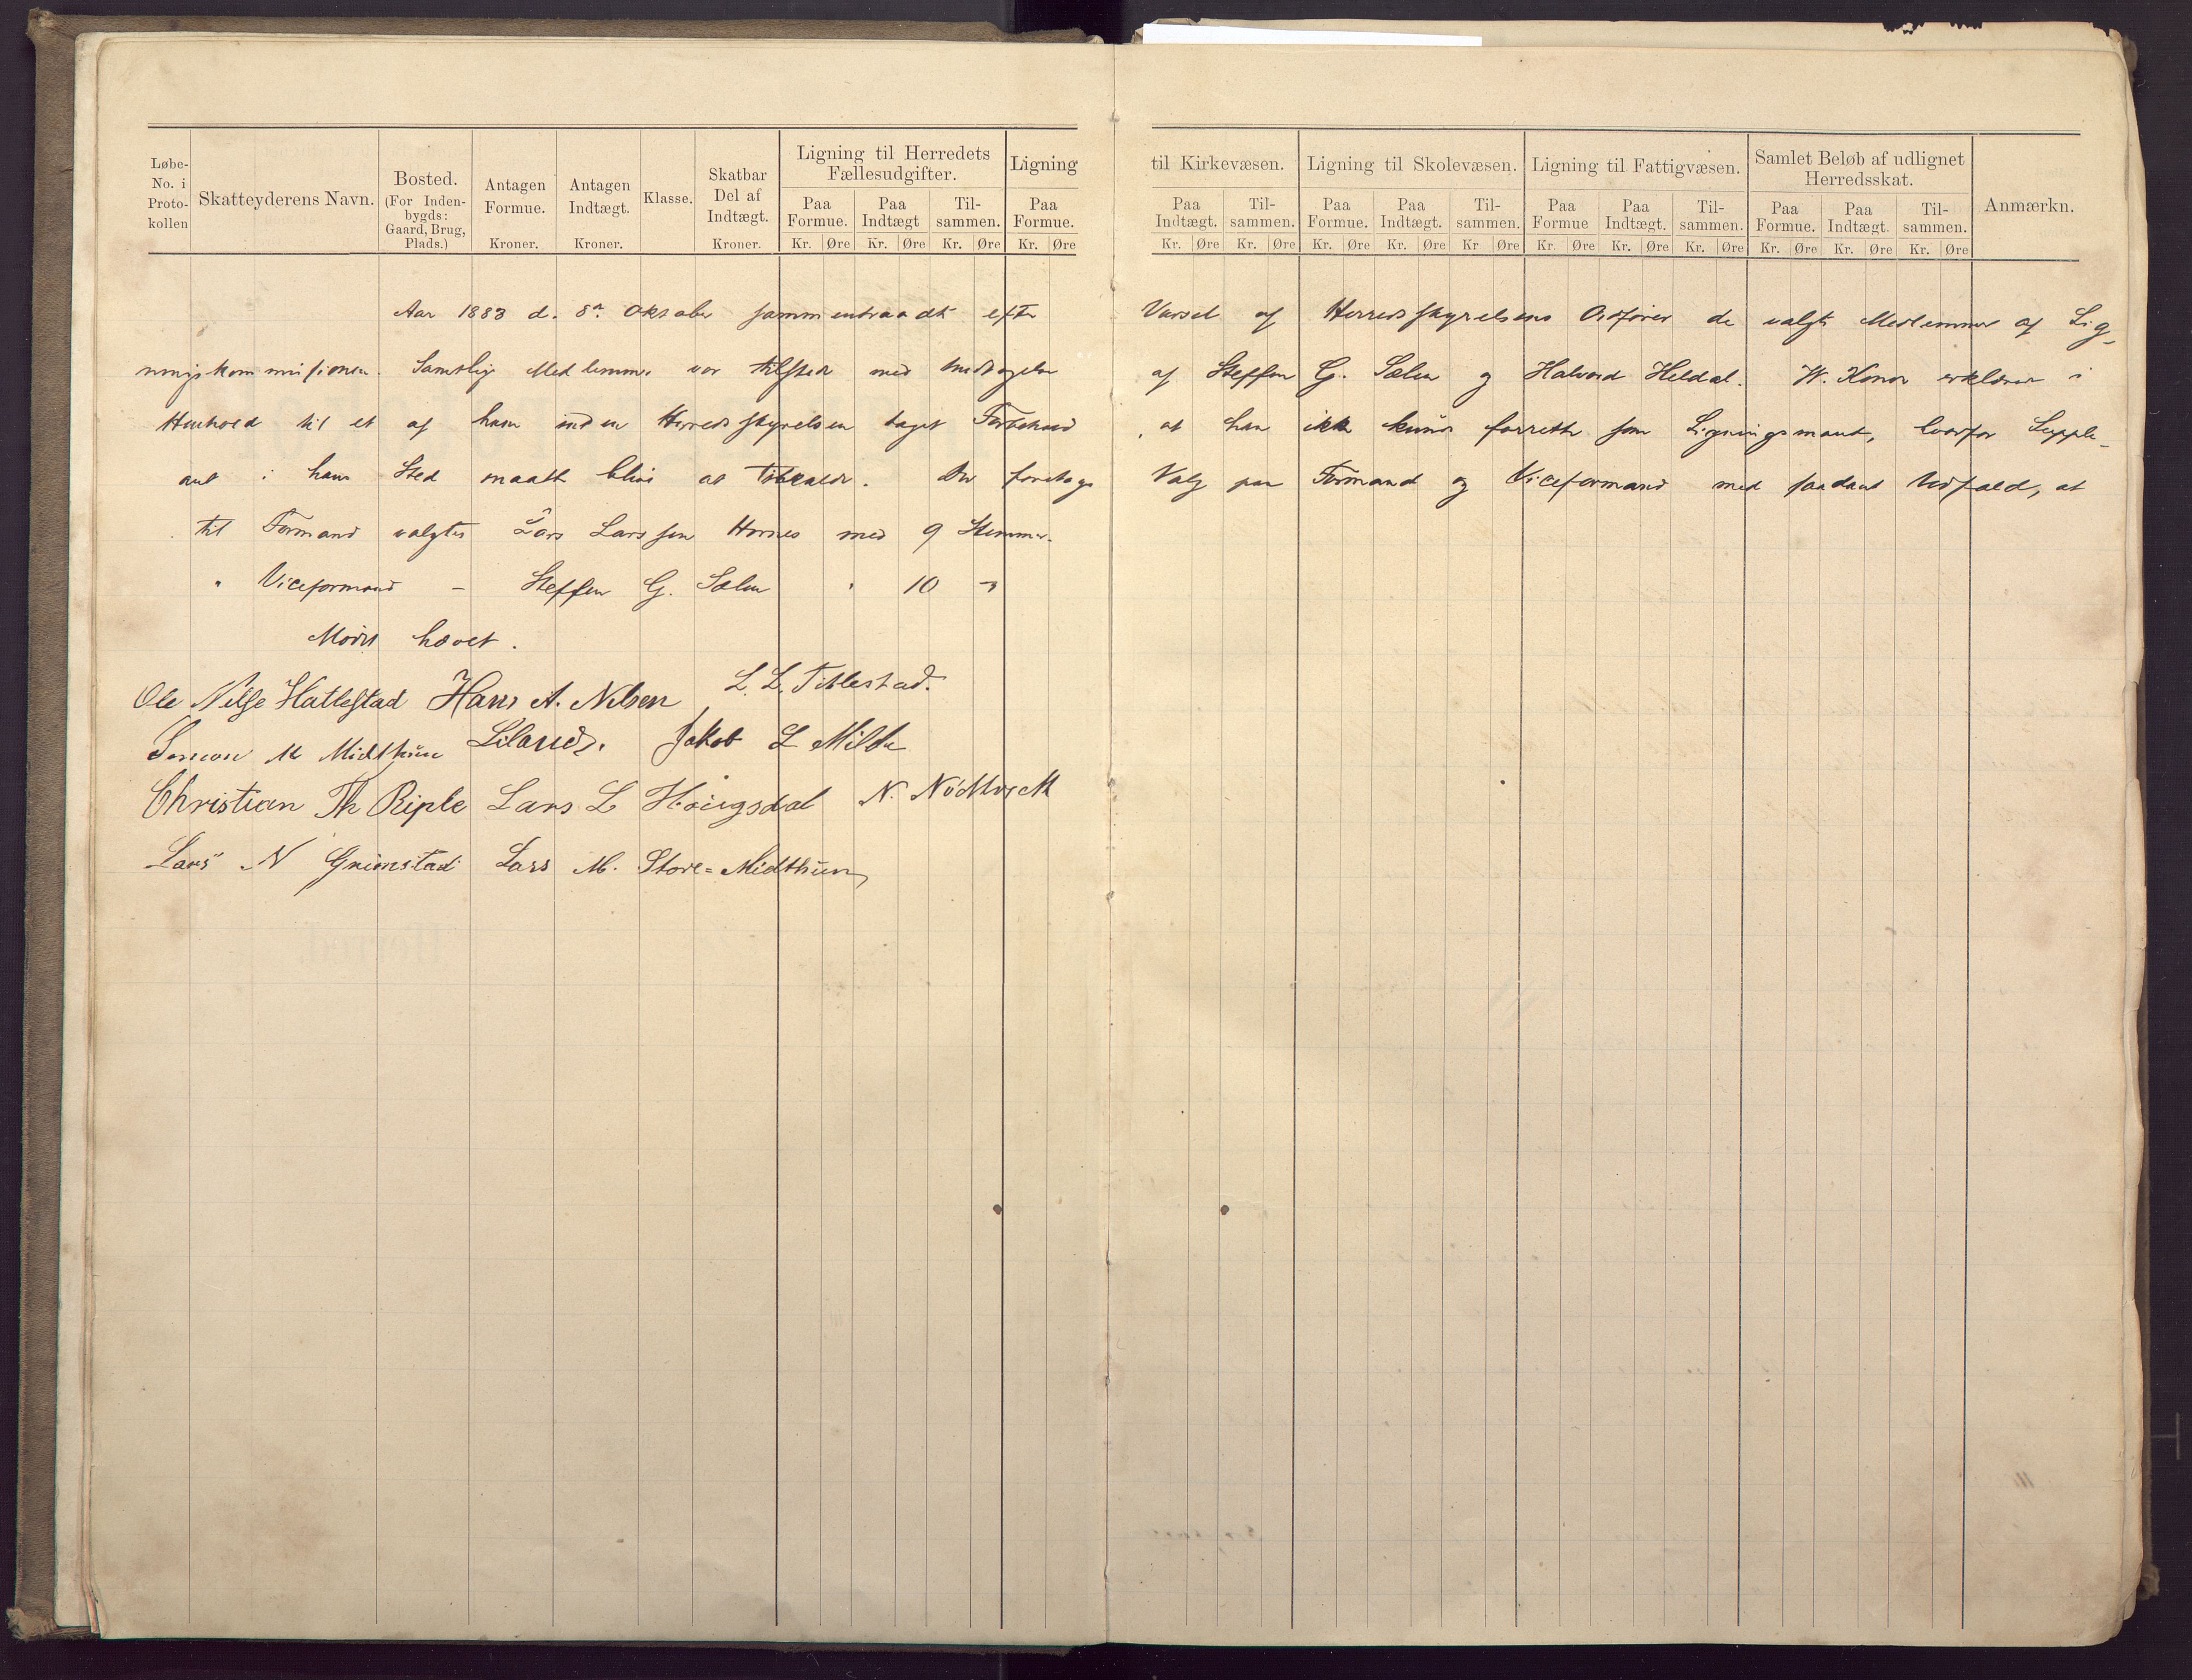 Løbe-No. i Proto-kollen
Skatteyderens Navn.
Bosted. (For Inden-bygds: Gaard, Brug, Plads.)
Antagen Formue. Kroner.
Antagen Indtægt. Kroner.
Klasse.
Skatbar Del af Indtægt. Kroner.
Ligning til Herredets Fællesudgifter.
Paa Formue. Kr. Øre
Paa Indtægt Kr. Øre
Til-sammen. Kr. Øre
Ligning til Kirkevæsen.
Paa Formue. Kr. Øre
Paa Indtægt. Kr. Øre
Til-sammen. Kr. Øre
Ligning til Skolevæsen.
Paa Formue. Kr. Øre
Paa Indtægt. Kr. Øre
Til-sammen. Kr Øre
Ligning til Fattigvæsen.
Paa Formue Kr. Øre
Paa Indtægt. Kr. Øre
Til-sammen. Kr. Øre
Samlet Beløb af udlignet Herredsskat.
Paa Formue. Kr. Øre
Paa Indtægt. Kr. Øre
Til-sammen. Kr. Øre
Anmærkn.
Aar 1883 d. 8de Oktober sammentraadte efter Varsel af Herredsstyrelsens Ordfører de valgte Medlemmer af Lig-
ningskommissionen. Samtlige Medlemmer var tilstede med Undtagelse af Steffen G. Sælen og Halvord Heldal. W. Konow erklærer i
Henhold til et af ham inden Herredsstyrelsen taget Forbehold, at han ikke kunde forrette som Ligningsmand, hvorfor Supple-
ant i hans Sted maatte blive at tilkalde. Der foretoges Valg paa Formand og Viceformand med saadant Udfald, at
til Formand valgtes Lars Larssen Hornes med 9 Stemmer.
" Viceformand - Steffen G. Sælen " 10 "
Mødet hævet.
Ole Nilsse Hattestad Hans A. Nilsen L. L. Titlestad.
Simon M Midthun Liland. Jakob L Milde
Christian Th Riple Lars L Høugsdal N. Nødtvedt
Lars N Grimstad Lars M. Store-Midthun